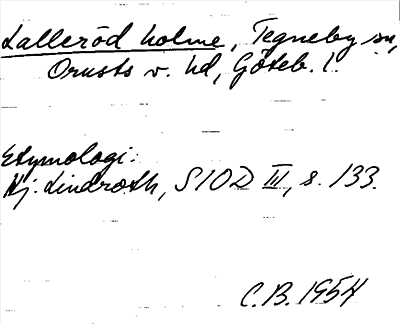 Lalleröd holme, Tegneby sn,
Orusts v. hd, Göteb. l.
Etymologi:
Hj. Lindroth, SIOD III, s. 133.
C.B. 1954